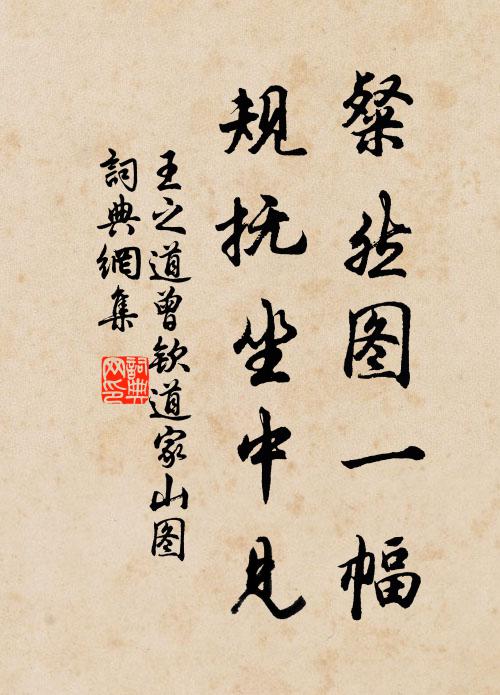 粲然图一幅
规抚坐中见
王之道曾欽道家山图
詞典網集
詞典网印